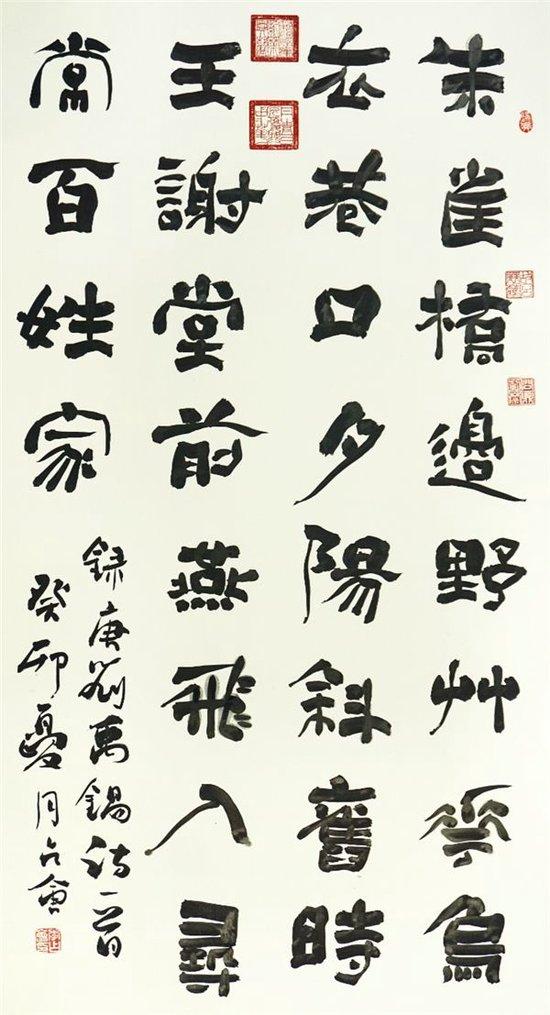 朱雀橋邊野艸花烏
衣巷口夕陽斜舊時
王謝堂前燕飛入尋
常百姓家
錄唐劉禹錫詩一首
癸卯夏月